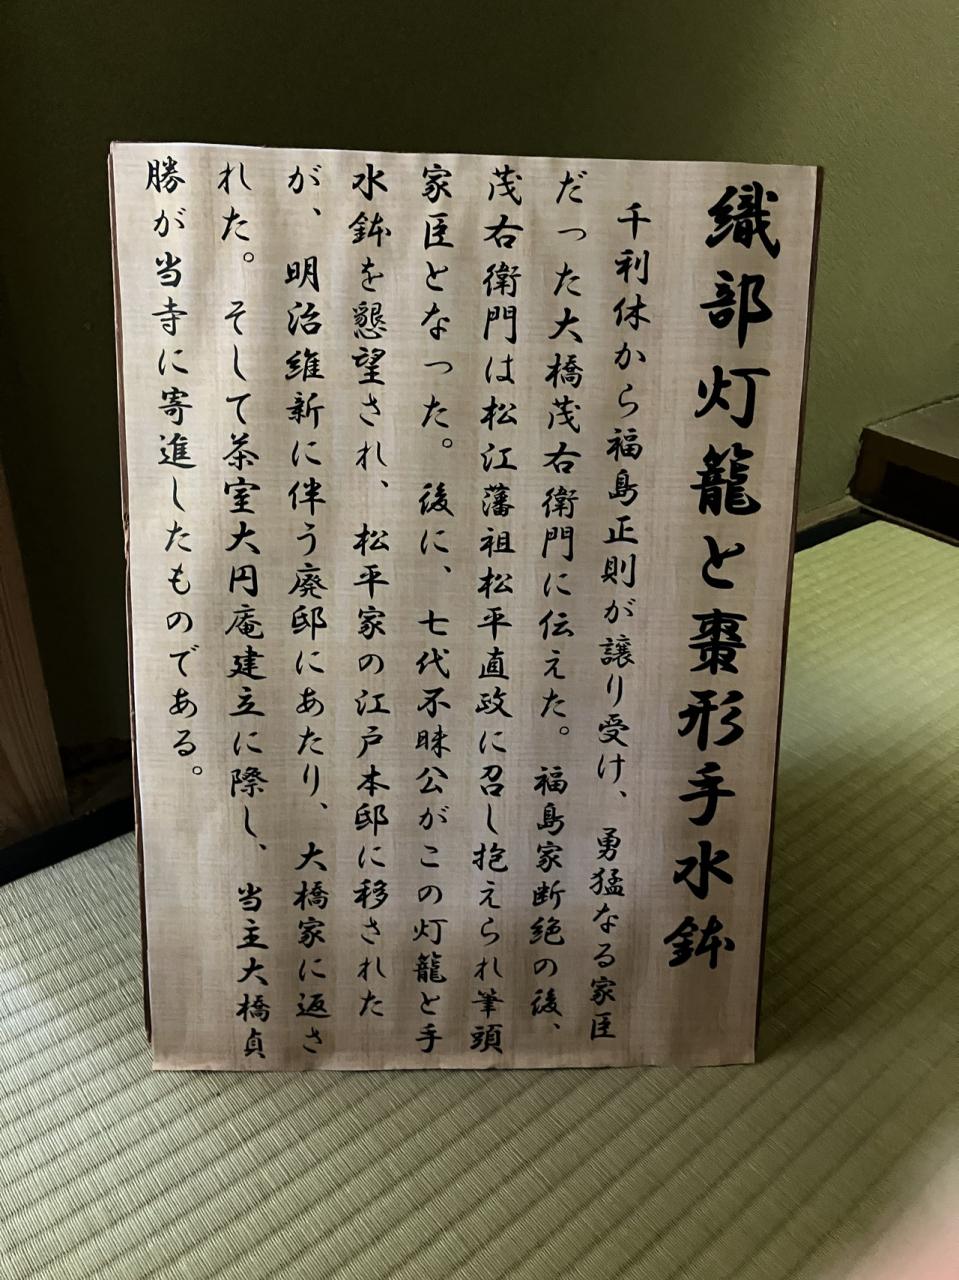 織部灯籠と棗形手水鉢
千利休から福島正則が譲り受け、勇猛なる家臣
だった大橋茂右衛門に伝えた。福島家断絶の後、
茂右衛門は松江藩祖松平直政に召し抱えられ筆頭
家臣となった。後に、七代不昧公がこの灯籠と手
水鉢を懇望され、松平家の江戸本邸に移された
が、明治維新に伴う廃邸にあたり、大橋家に返さ
れた。そして茶室大円庵建立に際し、当主大橋貞
勝が当寺に寄進したものである。